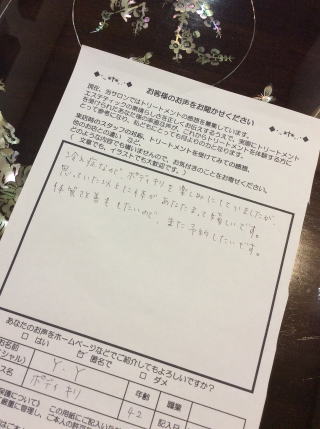 お客様のお声をお聞かせください
現在、当サロンではトリートメントの感想を募集しています。
エステティックの素晴らしさを正しくお伝えするうえで、実際にトリートメント
を受けられたあなた様の素直な声が、これからトリートメントを体験する方に
とって参考になり、私どもにとっても何よりの力となります。
来店時のスタッフの対応、トリートメントを受けてみての感想、
他のお店との違い など、
どのような内容でも構いませんので、お気付きのことをお寄せください。
文章でも、イラストでも大歓迎です。
冷え症なので、ボディキリを楽しみにしていましたが、
思っていた以上に体があたたまって嬉しいです。
体質改善もしたいので、また予約したいです。
あなたのお声をホームページなどでご紹介してもよろしいですか?
□ はい 匿名で □ ダメ
お名前
シャル) Y.Y 年齢 42 職業
ス名 ボディキリ 記入日
保護について) この用紙にご記入いた
厳重に管理し、ご本人の許可な